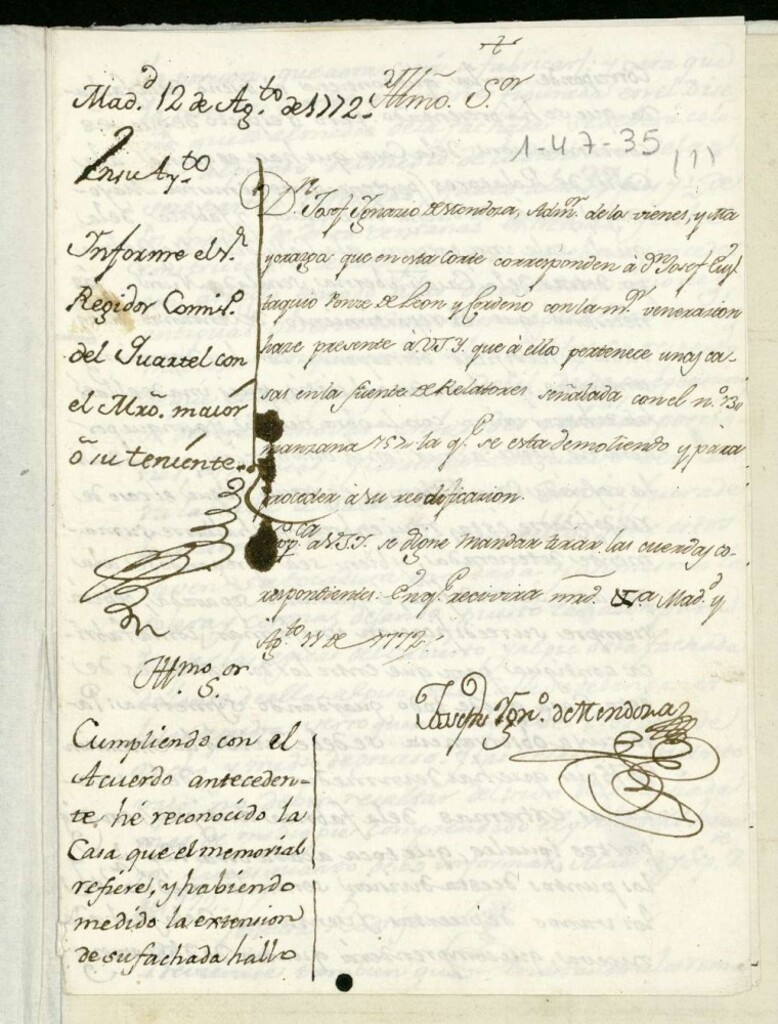 +
Mad.d 12 de Ag.to de 1772.
Illmo. S.or
1-47-35 (1)
En su Ay.to
Informe el S.r
Regidor Comis.o
del Quartel con
el Mro. maior
ó su teniente.
D.n Josef Ignazio de Mendoza, Adm.or de los vienes, y Ma
yorazgo que en esta Corte corresponden à d.n Josef Eus
taquio Ponze de Leon y Cordeno con la m.or venerazion
haze presente à V.S.Y. que à ella pertenece unas ca-
sas en la fuente de Relatores señalada con el n.o 130
manzana 157 la q.e se esta demoliendo y para
proceder à su reedificazion.
Sup.ca a V.S.Y. se digne mandar tirar las cuerdas co-
rrespondientes. En q.e recivira mrd. Mad.d y
Ag.to 11 de 1772.
Joseph Ygn.o de Mendoza
Illmo. S.or
Cumpliendo con el
Acuerdo anteceden-
te hé reconocido la
Casa que el memorial
refiere, y habiendo
medido la extension
de su fachada hallo